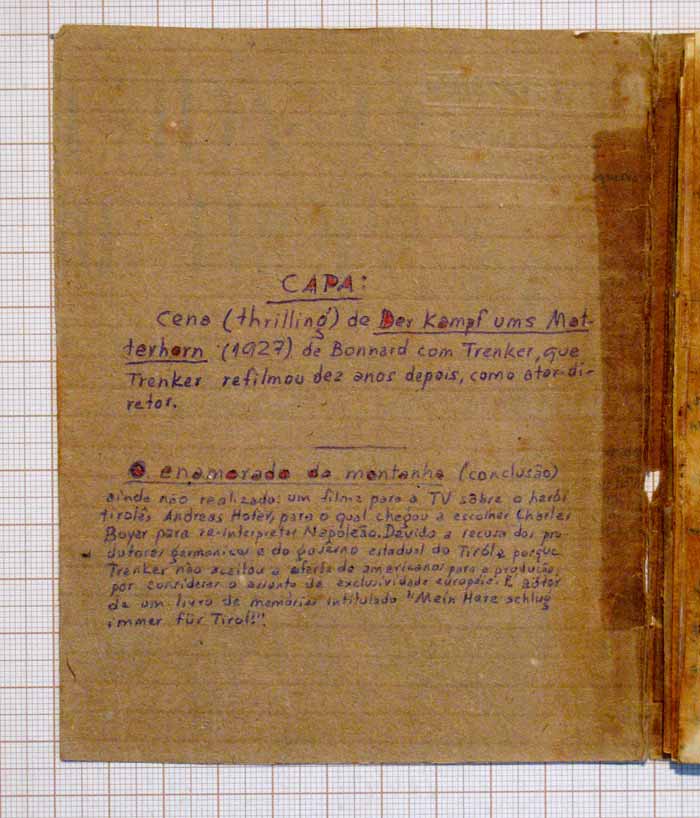 CAPA:
Cena (thrilling) de Der Kampf ums Mat-
terhorn (1927) de Bonnard com Trenker, que
Trenker refilmou dez anos depois, como ator-di-
retor.
O enamorado da montanha (conclusão)
ainda não realizado: um filme para a TV sôbre o herói
tirolês Andreas Hofer, para o qual chegou a escolher Charles
Boyer para re-interpretar Napoleão. Devido a recusa dos pro-
dutores germanicos e do govêrno estadual do Tiról e porque
Trenker não aceitou a oferta de americanos para a produção,
por considerar o assunto de exclusividade européia. É autor
de um livro de memórias intitulado "Mein Harz schlug
immer für Tirol!".